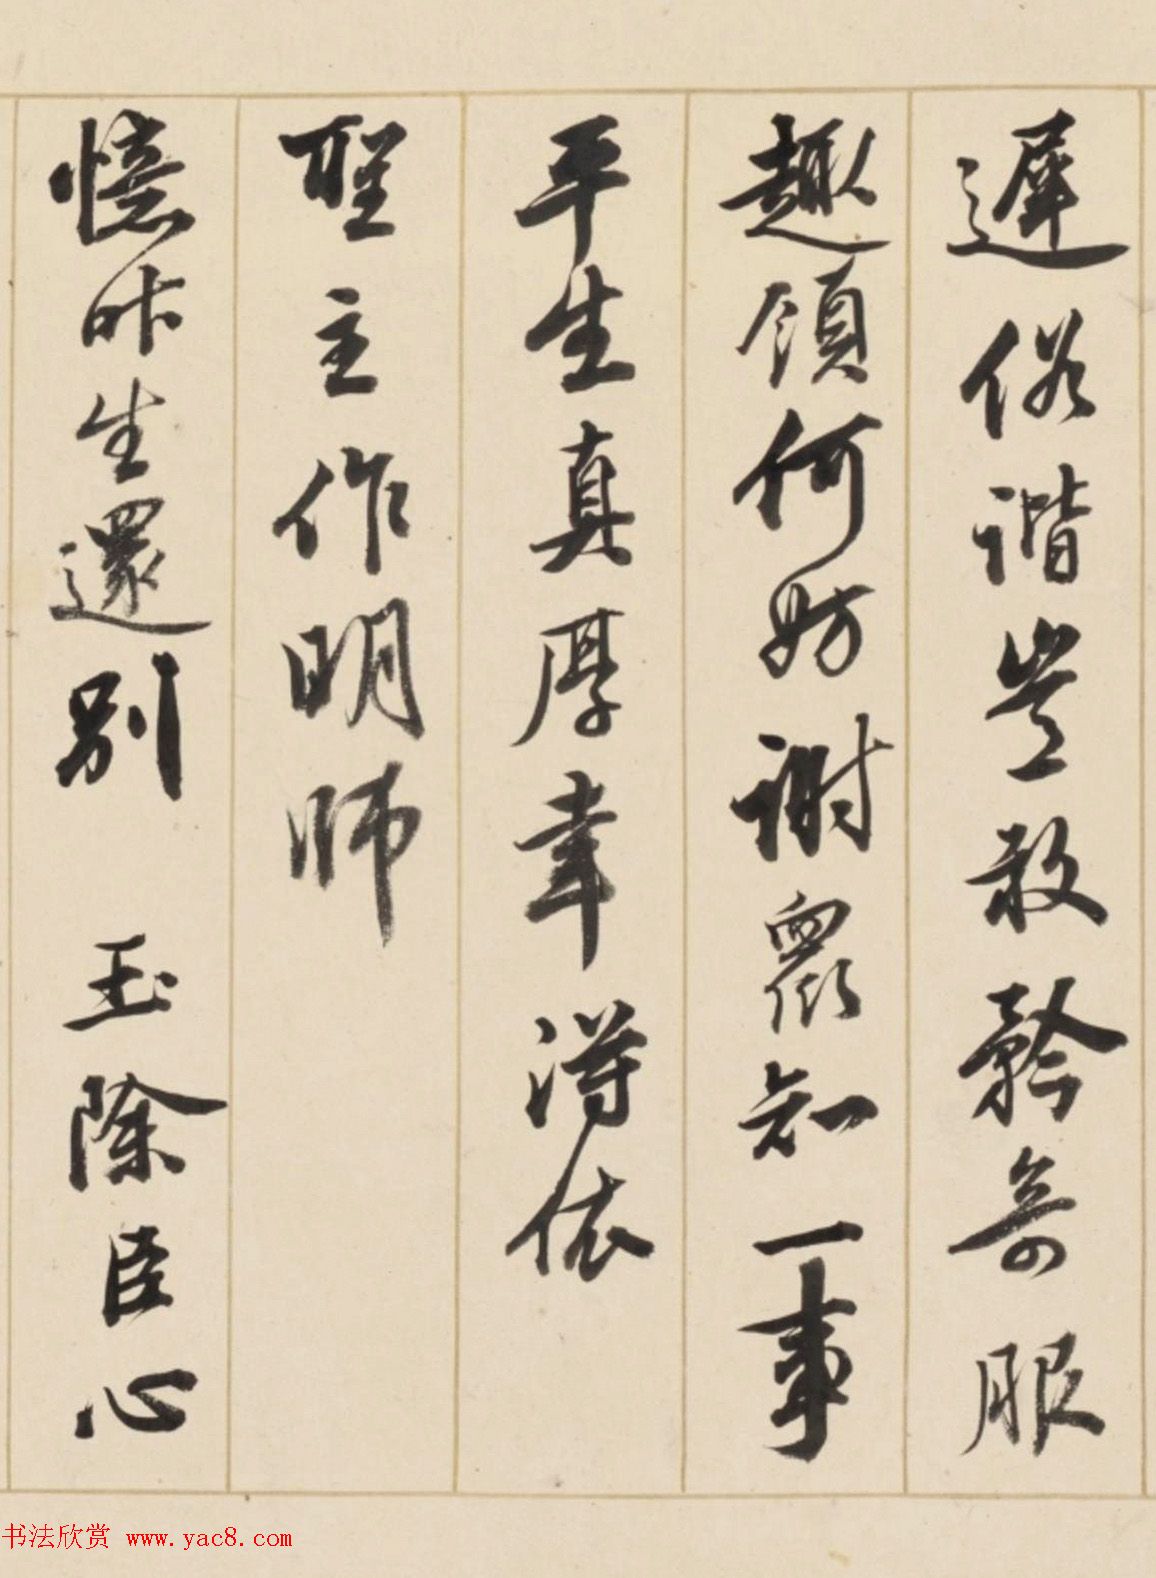 遲俗諧豈敢矜奇服
趣領何妨謝衆知一事
平生真厚幸得依
聖主作明師
憶昨生還別 玉除臣心
书法欣赏 www.yac8.com